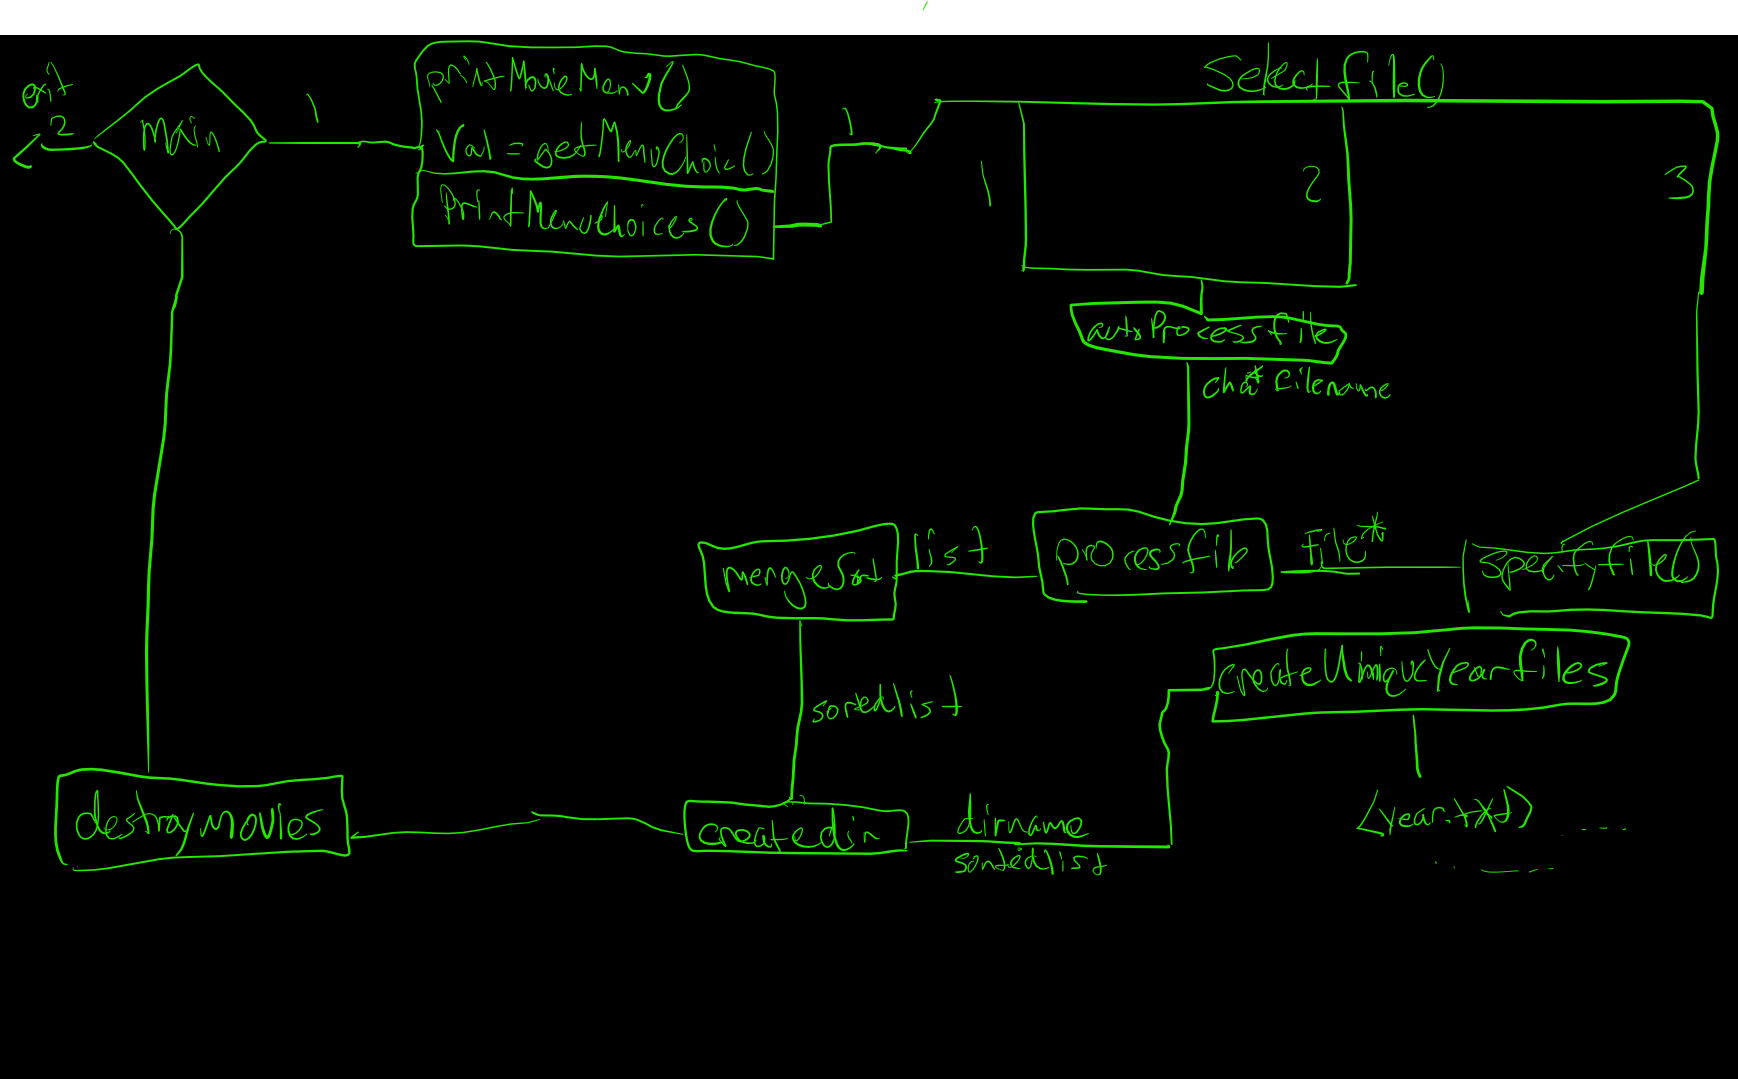 exit
2
main
1
printMovieMenu()
Val = getMenuChoic()
PrintMenuChoices()
1
Selectfile()
1
2
3
autoProcessfile
char* filename
mergeSort
list
processfile
File*
specifyfile()
sortedlist
createUniqueYearfiles
destroymovies
createdir
dirname
sortedlist
<year.txt>